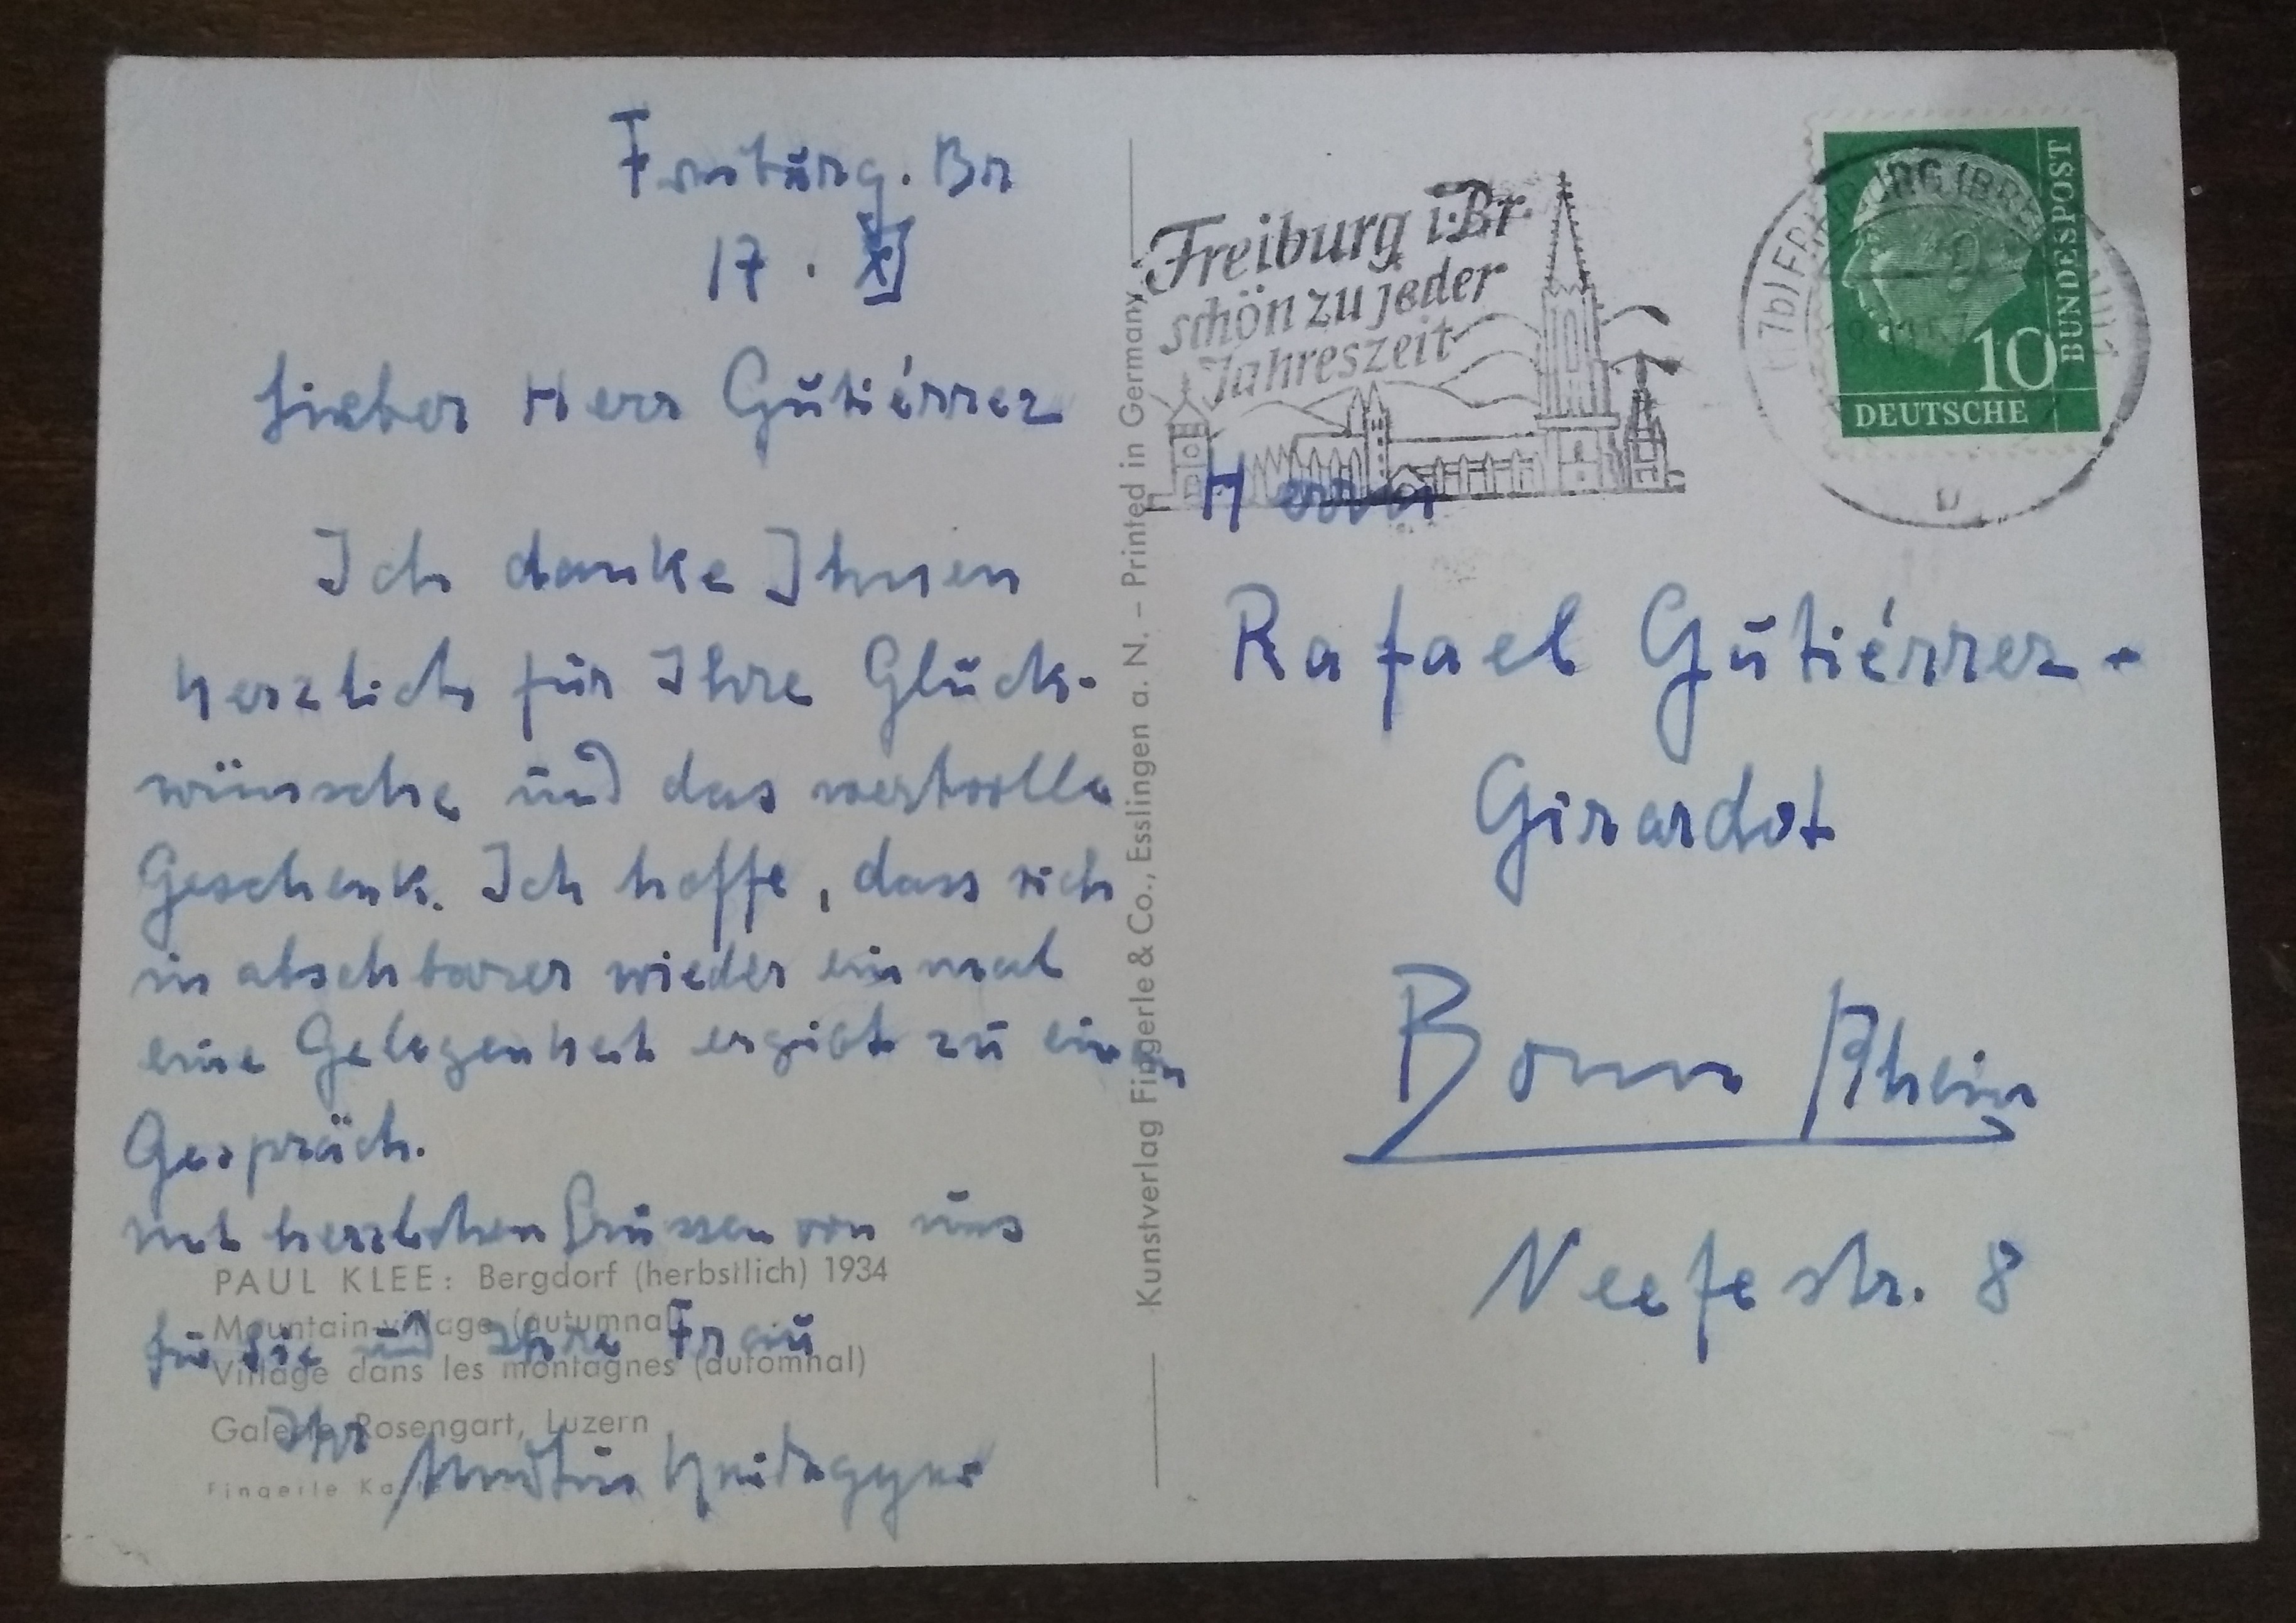 Freiburg. Br
17. XI
Lieber Herr Gutiérrez
Ich danke Ihnen
herzlich für Ihre Glück-
wünsche und das wertvolle
Geschenk. Ich hoffe, dass sich
in absehbarer wieder einmal
eine Gelegenheit ergibt zu einem
Gespräch.
Mit herzlichen Grüssen von uns
für Sie und Ihre Frau
Ihr
Martin Heidegger
PAUL KLEE: Bergdorf (herbstlich) 1934
Mountain-village (autumnal)
Village dans les montagnes (automnal)
Galerie Rosengart, Luzern
Fingerle
Kunstverlag Fingerle & Co., Esslingen a. N. – Printed in Germany
Freiburg i.Br.
schön zu jeder
Jahreszeit
(17b) FREIBURG (BREISGAU)
DEUTSCHE
BUNDESPOST
10
Herrn
Rafael Gutiérrez-
Girardot
Bonn/Rhein
Neefestr. 8